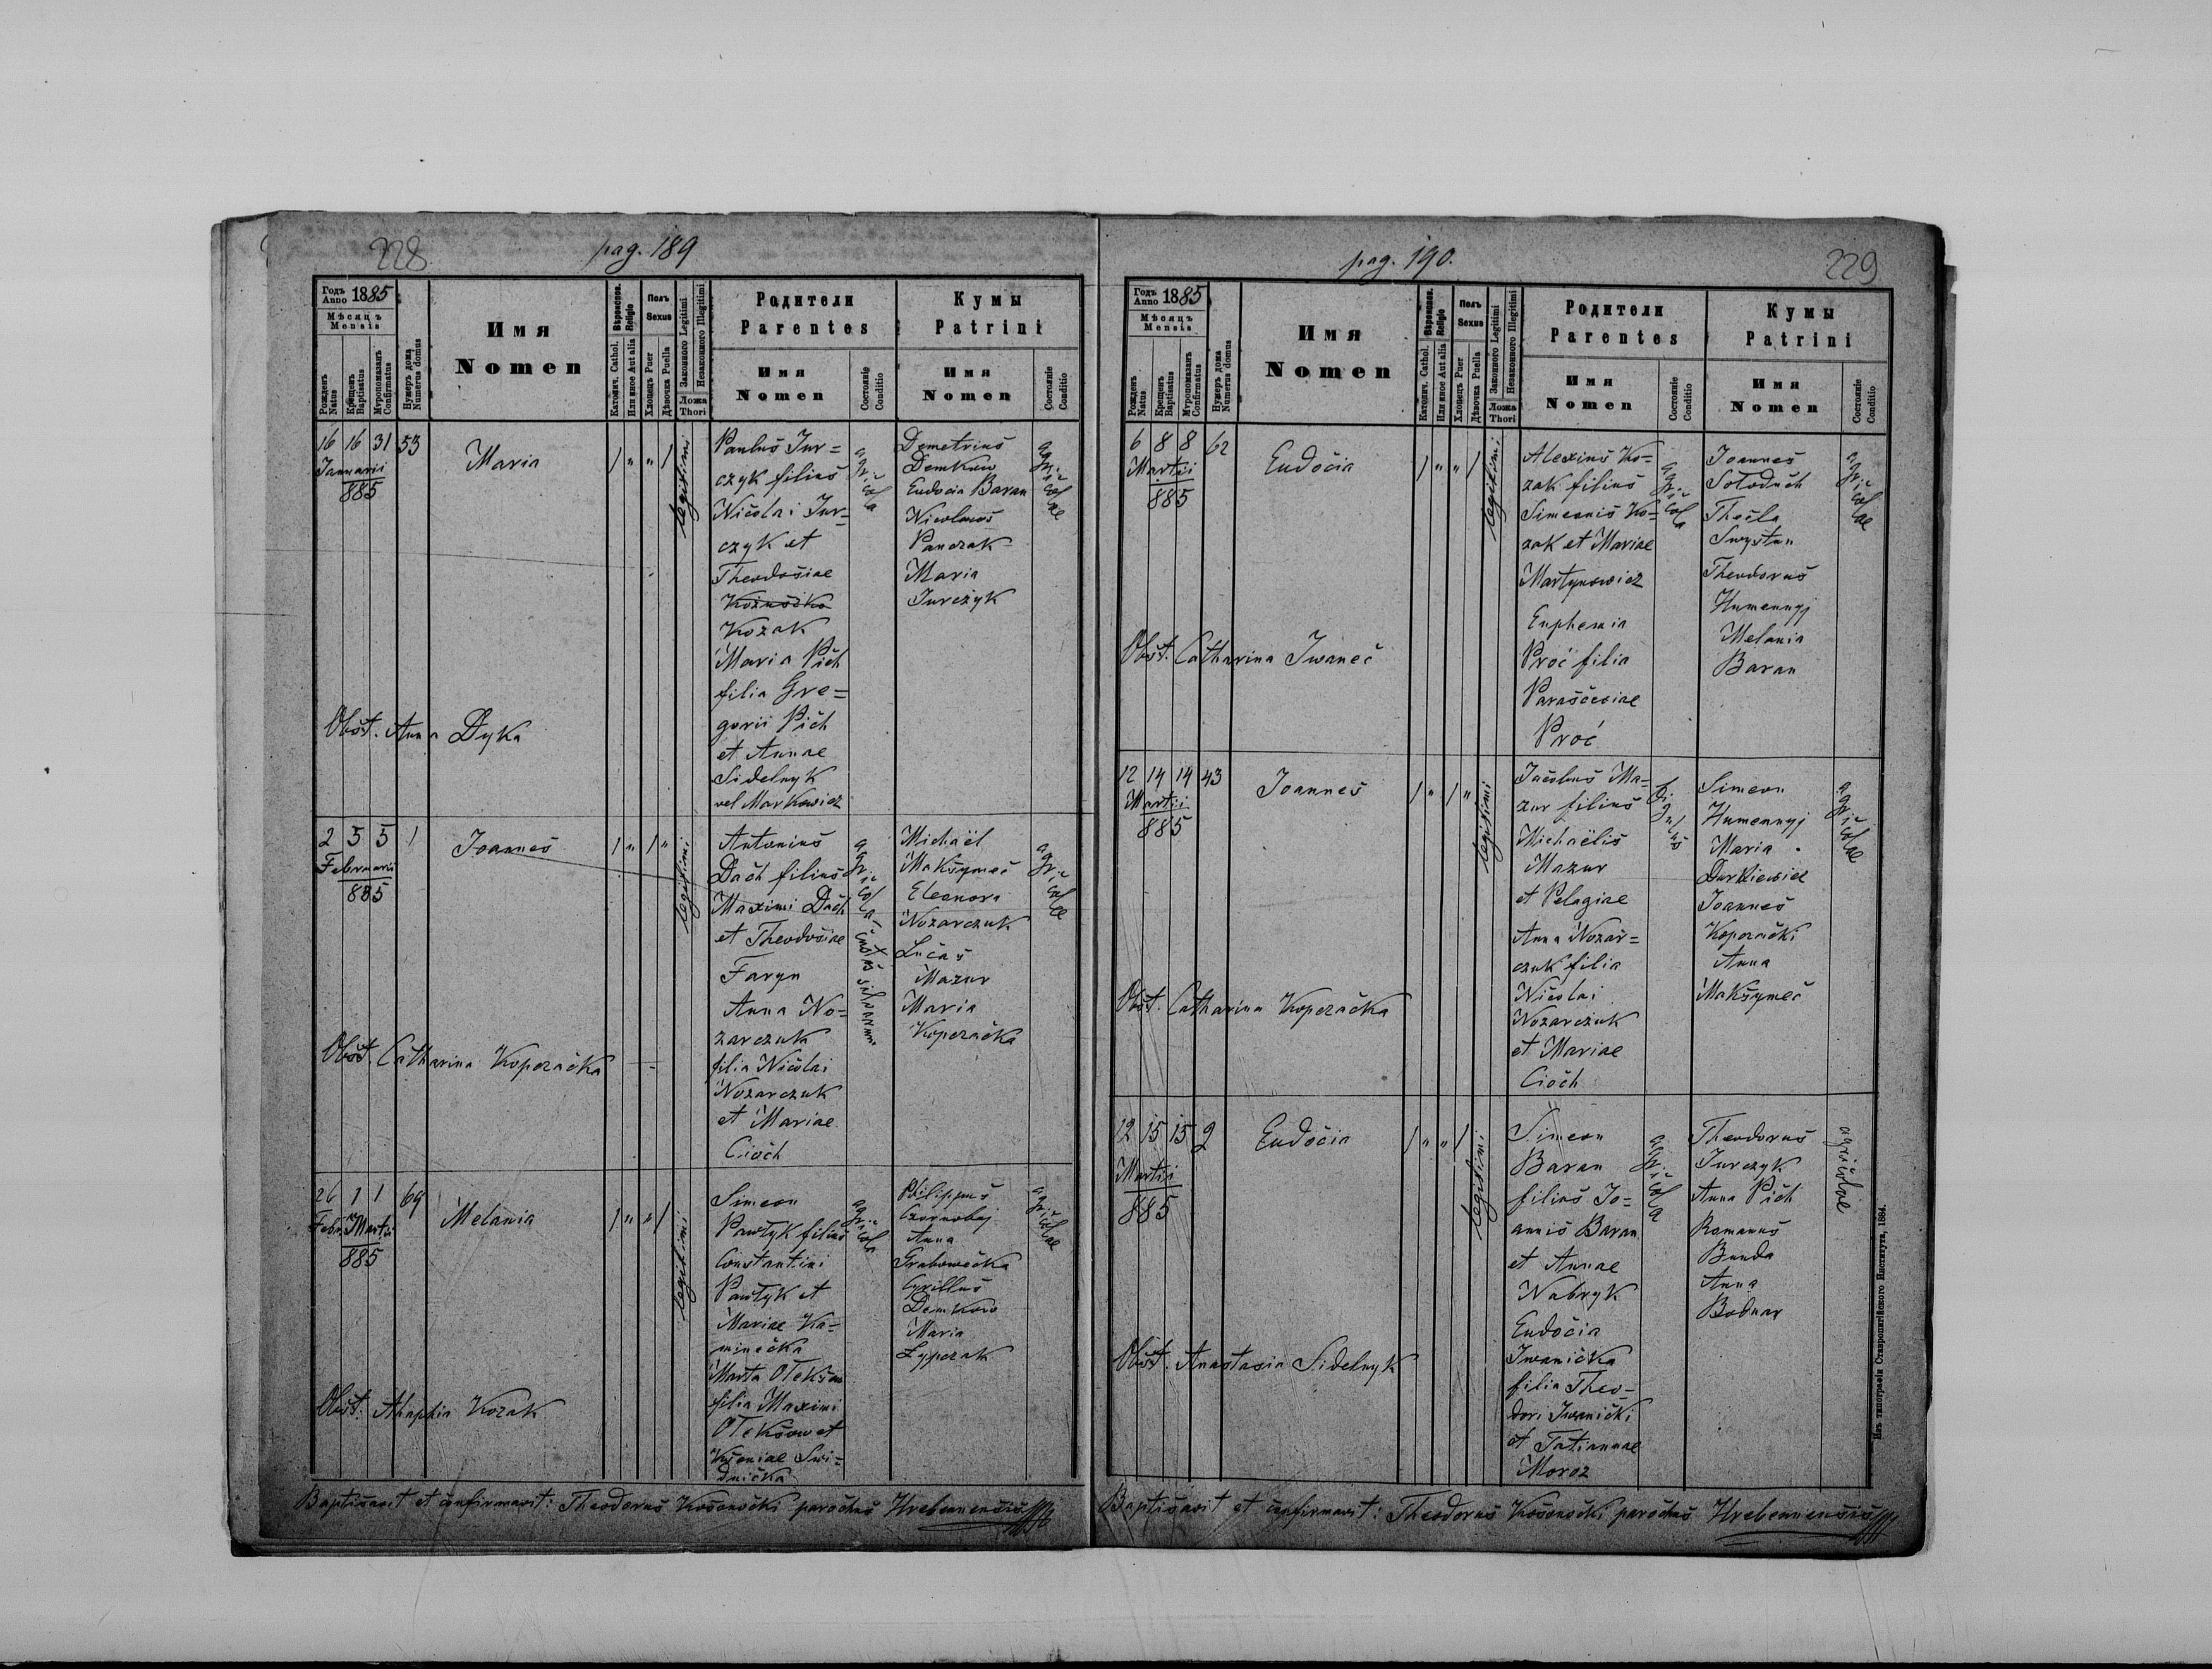 228
pag. 189
Годъ
Anno 1885
Мѣсяцъ
Mensis
Рожденъ
Natus
Крещенъ
Baptisatus
Мѵропомазанъ
Confirmatus
Нумеръ дома
Numerus domus
Имя
Nomen
Вѣроиспов.
Religio
Католич. Cathol.
Или иное Aut alia
Полъ
Sexus
Хлопецъ Puer
Дѣвочка Puella
Законного Legitimi
Незаконного Illegitimi
Ложа
Thori
Родители
Parentes
Имя
Nomen
Состояніе
Conditio
Кумы
Patrini
Имя
Nomen
Состояніе
Conditio
16 16 31 53
Januarii
885
Maria
/ " " /
legitimi
Paulus Jur=
czyk filius
Nicolai Jur=
czyk et
Theodosiae
Kozak
Maria Pich
filia Gre=
gorii Pich
et Annae
Sidelnyk
vel Markowicz
agricola
Demetrius
Demkow
Eudocia Baran
Nicolaus
Panczak
Maria
Jurczyk
agricolae
Obst. Anna Dyka
2 5 5 1
Februarii
885
Joannes
/ " / "
legitimi
Antonius
Dach filius
Maximi Dach
et Theodosiae
Faryn
Anna No=
zarczuk
filia Nicolai
Nozarczuk
et Mariae
Cioch
agricola
custos silvarum
Michaël
Maksymec
Eleonora
Nozarczuk
Lucas
Mazur
Maria
Kopczacka
agricolae
Obst. Catharina Kopczacka
26 1 1 69
Febr. Martii
885
Melania
/ " " /
legitimi
Simeon
Pawłyk filius
Constantini
Pawłyk et
Mariae Ka=
minecka
Marta Ołeksow
filia Maximi
Ołeksow et
Kseniae Swi=
dnicka
agricola
Philippus
Czornobaj
Anna
Grabowecka
Cyrillus
Demkow
Maria
Łypczak
agricolae
Obst. Ahaphia Kozak
Baptisavit et confirmavit: Theodorus Kosonocki parochus Hrebennensis
pag. 190.
229
Годъ
Anno 1885
Мѣсяцъ
Mensis
Рожденъ
Natus
Крещенъ
Baptisatus
Мѵропомазанъ
Confirmatus
Нумеръ дома
Numerus domus
Имя
Nomen
Вѣроиспов.
Religio
Католич. Cathol.
Или иное Aut alia
Полъ
Sexus
Хлопецъ Puer
Дѣвочка Puella
Законного Legitimi
Незаконного Illegitimi
Ложа
Thori
Родители
Parentes
Имя
Nomen
Состояніе
Conditio
Кумы
Patrini
Имя
Nomen
Состояніе
Conditio
6 8 8 62
Martii
885
Eudocia
/ " " /
legitimi
Alexius Ko=
zak filius
Simeonis Ko=
zak et Mariae
Martynowicz
Euphemia
Proć filia
Parasceviae
Proć
agricola
Joannes
Sołoduch
Thecla
Swystun
Theodorus
Humennyj
Melania
Baran
agricolae
Obst. Catharina Iwanec
12 14 14 43
Martii
885
Joannes
/ " / "
legitimi
Jacobus Ma=
zur filius
Michaëlis
Mazur
et Pelagiae
Anna Nozar=
czuk filia
Nicolai
Nozarczuk
et Mariae
Cioch
figulus
Simeon
Humennyj
Maria
Durkiewicz
Joannes
Kopczacki
Anna
Maksymec
agricolae
Obst. Catharina Kopczacka
12 15 15 2
Martii
885
Eudocia
/ " " /
legitimi
Simeon
Baran
filius Jo=
annis Baran
et Annae
Nabryk
Eudocia
Iwanicka
filia Theo=
dori Iwanicki
et Tatiannae
Moroz
agricola
Theodorus
Jurczyk
Anna Pich
Romanus
Bunda
Anna
Bodnar
agricolae
Obst. Anastasia Sidelnyk
Baptisavit et confirmavit: Theodorus Kosonocki parochus Hrebennensis
Изъ типографіи Ставропигійского Института, 1884.